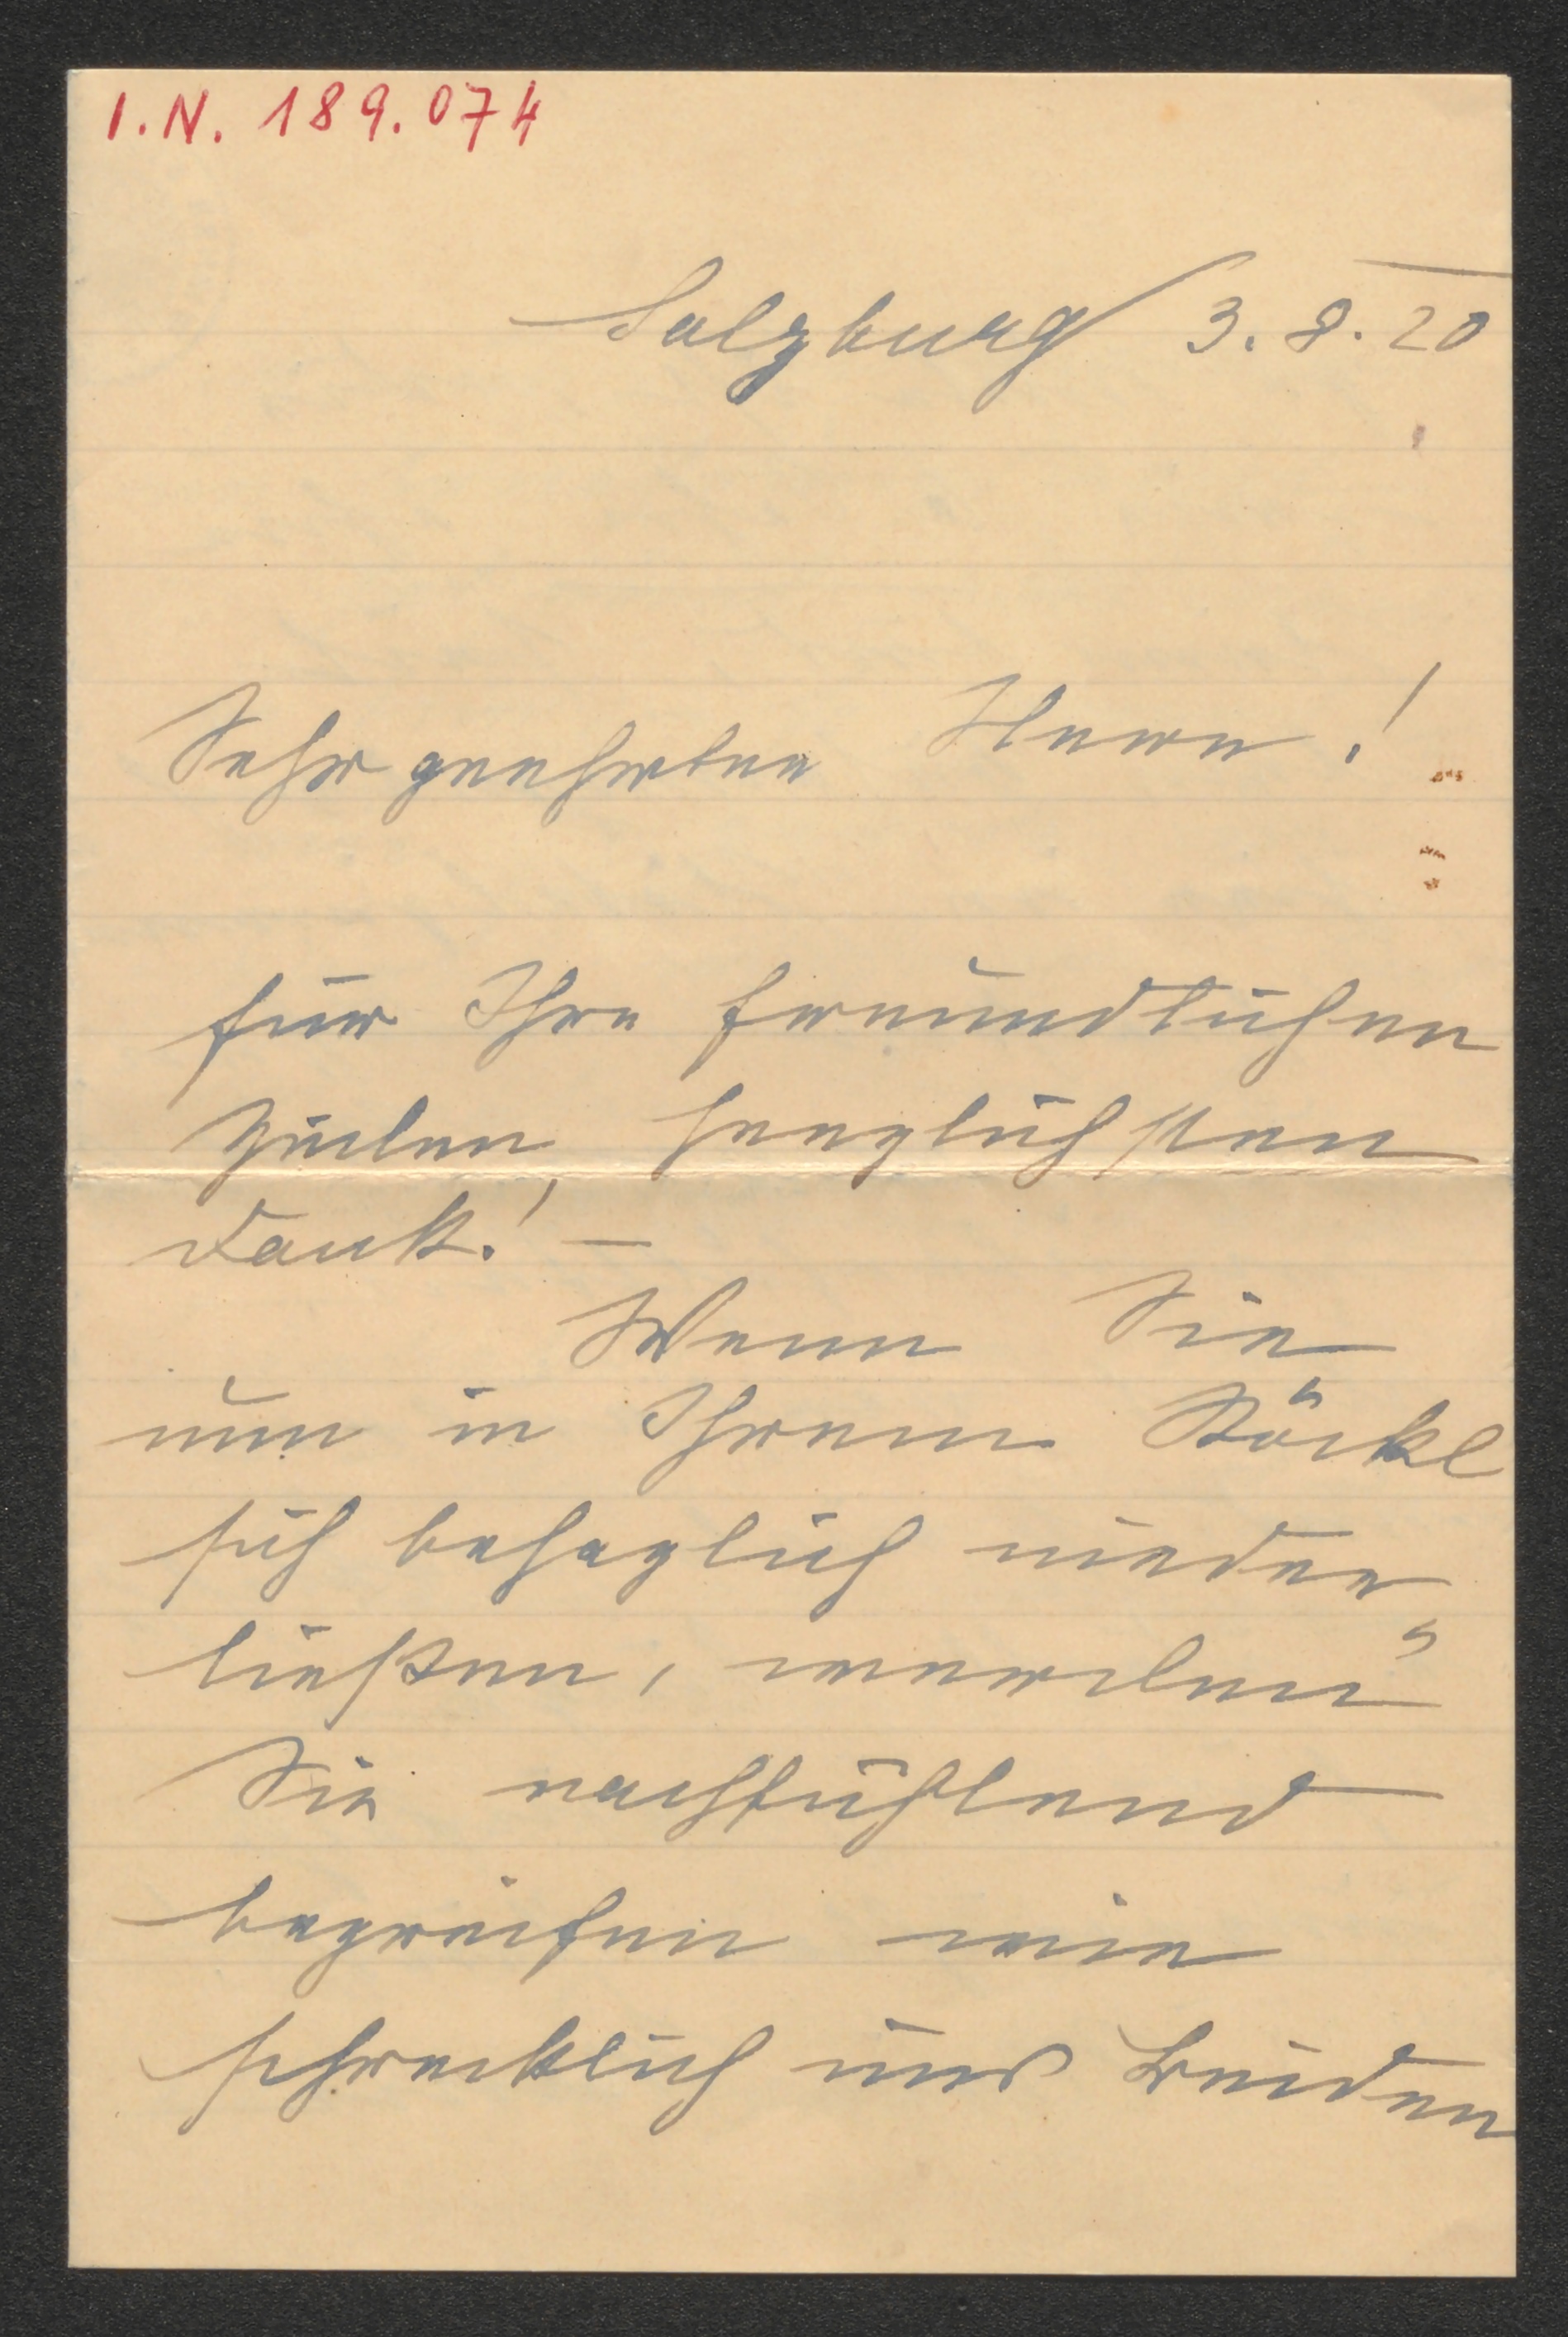 I.N. 189.074
Salzburg 3.8.20
Sehr geehrter Herr!
für Ihre freundlichen
Zeilen herzlichsten
Dank! —
Wenn Sie
nun in Ihrem Stöckl
sich behaglich nieder
ließen, werden
Sie nachfühlend
begreifen wie
schrecklich uns Beiden